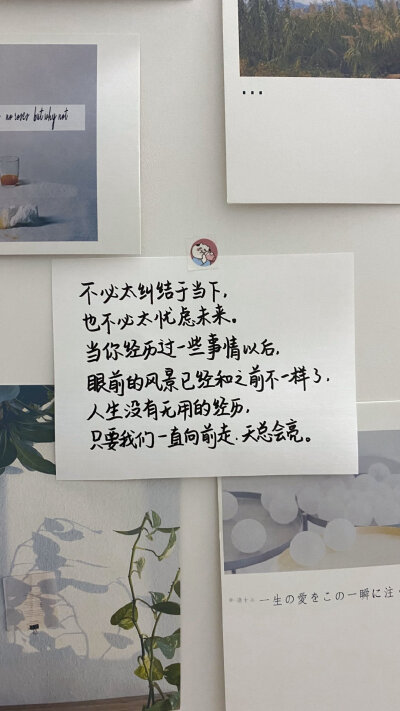 no roses but why not
不必太纠结于当下，
也不必太忧虑未来。
当你经历过一些事情以后，
眼前的风景已经和之前不一样了，
人生没有无用的经历，
只要我们一直向前走，天总会亮。
一生の愛をこの一瞬に注